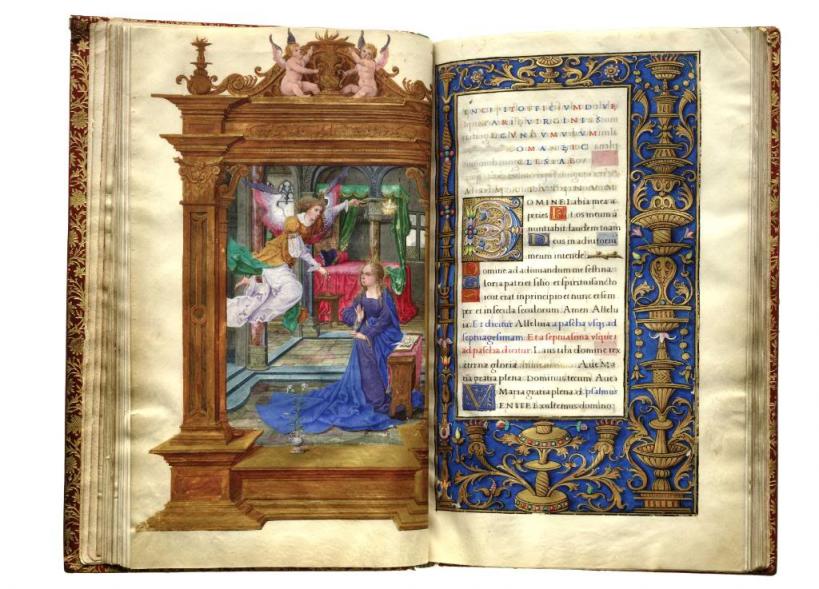 INCIPIT OFFICIVM D VE
ARI VIRGINIS
SECVNDVM VSVM
ROMANE EC
CLESIAE
DOMINE Labia mea a
peries Et os meum ā
nuntiabit laudem tuam
Deus in adiutoriū
meum intende
Domine ad adiuuandum me festina
Gloria patri et filio et spiritui sancto
Sicut erat in principio et nunc et sem
per et in secula seculorum Amen Allelu
ia. Et dicitur Alleluia a pascha vsque ad
septuagesimam. Et a septuagesima vsque
ad pascha dicitur. Laus tibi domine rex
eterne gloriae Aue Ma
ria gratia plena. Dominus tecum Aue
Maria gratia plena. d. psalmus
VENITE Exultemus domino